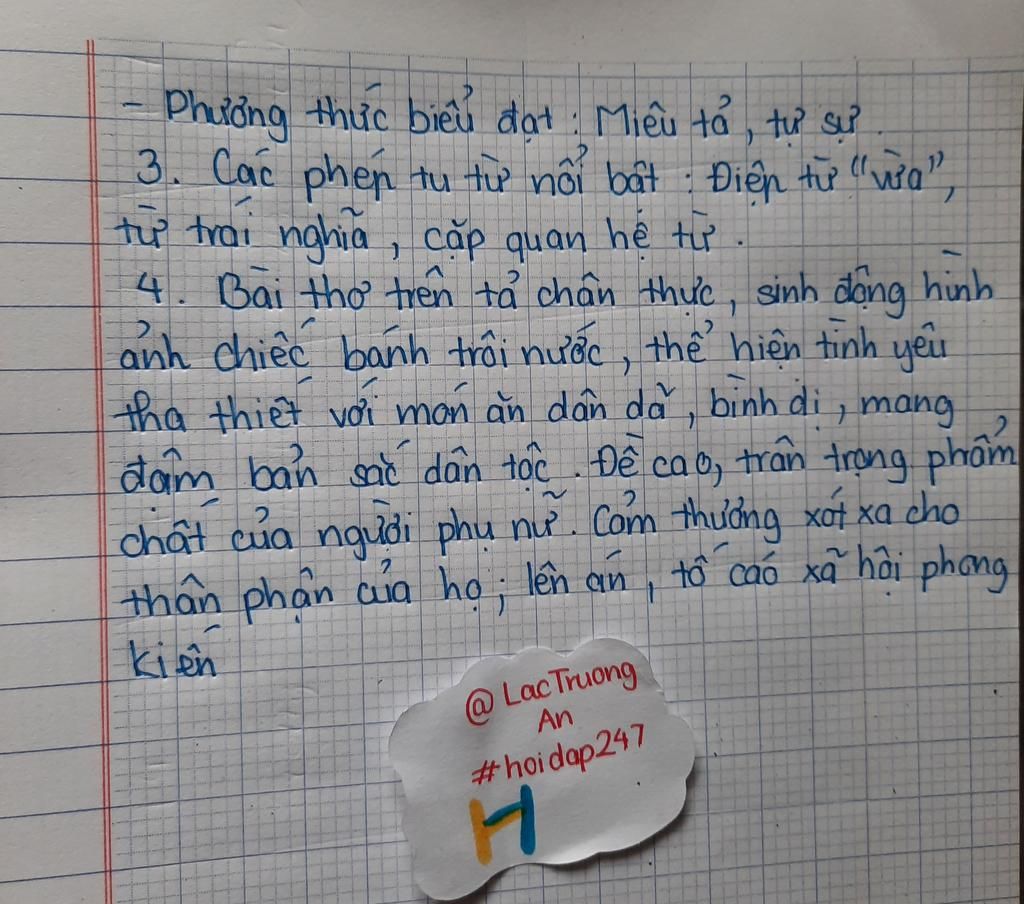 - Phương thức biểu đạt : Miêu tả, tự sự.
3. Các phép tu từ nổi bật : Điệp từ "vừa",
từ trái nghĩa, cặp quan hệ từ.
4. Bài thơ trên tả chân thực, sinh động hình
ảnh chiếc bánh trôi nước, thể hiện tình yêu
tha thiết với món ăn dân dã, bình dị, mang
đậm bản sắc dân tộc. Đề cao, trân trọng phẩm
chất của người phụ nữ. Cảm thương xót xa cho
thân phận của họ; lên án, tố cáo xã hội phong
kiến
@LacTruong
An
#hoidap247
H